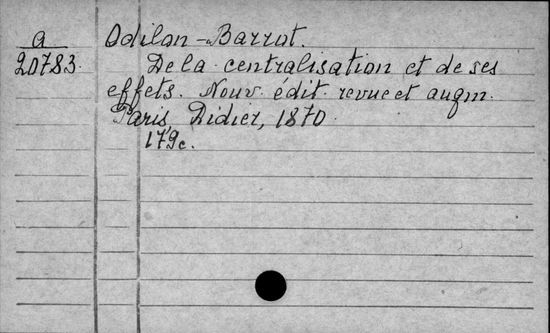 a Odilon-Barrot.
20783. De la centralisation et de ses
effets. Nouv. édit. revue et augm.
Paris, Didier, 1870.
179c.